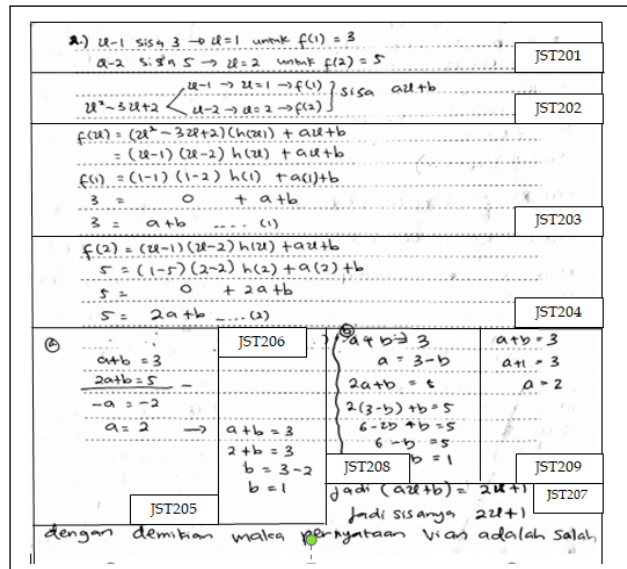 2.) x-1 sisa 3 → x=1 untuk f(1) = 3
x-2 sisa 5 → x=2 untuk f(2) = 5
JST201
x-1 → x=1 → f(1)
x²-3x+2
x-2 → x=2 → f(2)
} sisa ax+b
JST202
f(x) = (x²-3x+2)(h(x)) + ax+b
= (x-1) (x-2) h(x) + ax+b
f(1) = (1-1) (1-2) h(1) + a(1)+b
3 = 0 + a+b
3 = a+b .... (1)
JST203
f(2) = (x-1)(x-2) h(x) + ax+b
5 = (1-5)(2-2) h(2) + a(2)+b
5 = 0 + 2a+b
5 = 2a+b .... (2)
JST204
(a)
a+b = 3
2a+b = 5 -
-a = -2
a = 2 →
JST205
JST206
a+b = 3
2+b = 3
b = 3-2
b = 1
(b)
a+b = 3
a = 3-b
2a+b = 5
2(3-b)+b = 5
6-2b+b = 5
6-b = 5
b = 1
JST208
a+b = 3
a+1 = 3
a = 2
JST209
jadi (ax+b) = 2x+1
JST207
Jadi sisanya 2x+1
dengan demikian maka pernyataan Vian adalah salah